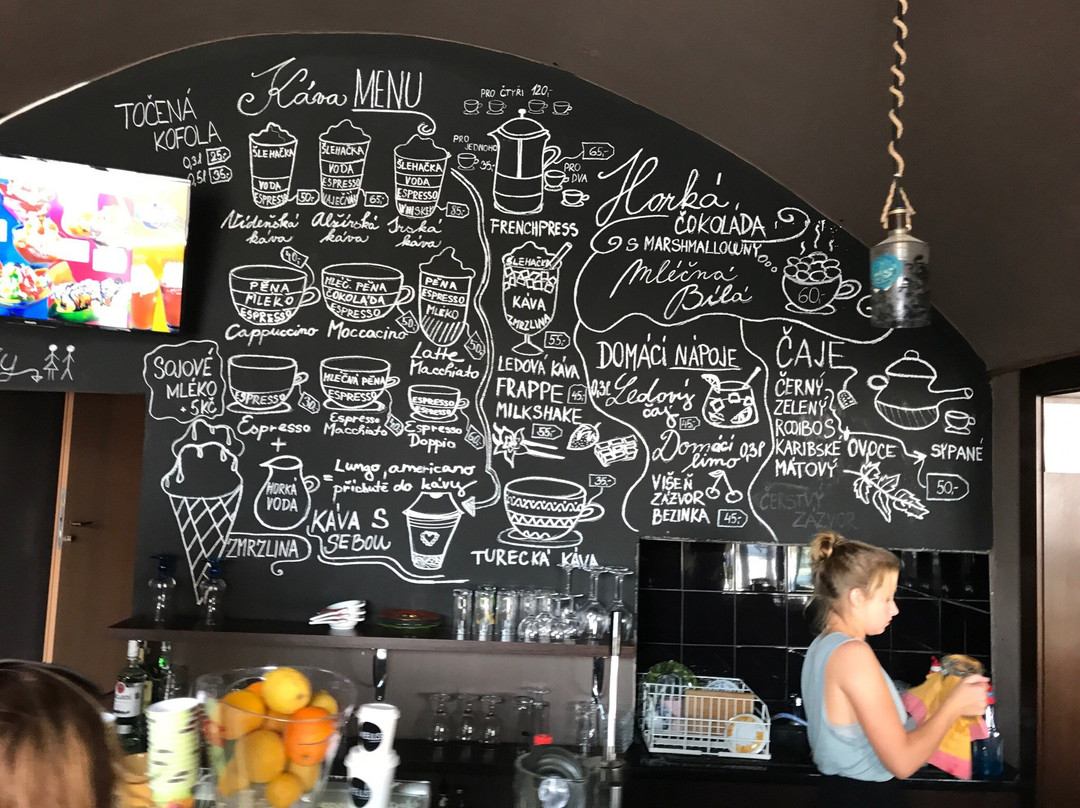 Káva MENU
TOČENÁ
KOFOLA
0,3l 25,-
0,5l 35,-
ŠLEHAČKA
VODA
ESPRESSO
50,-
Vídeňská
káva
ŠLEHAČKA
VODA
ESPRESSO
VAJEČŇÁK
65,-
Alžírská
káva
ŠLEHAČKA
VODA
ESPRESSO
WHISKEY
85,-
Irská
káva
PRO ČTYŘI 120,-
PRO
JEDNOHO
35,-
65,-
PRO
DVA
FRENCHPRESS
40,-
PĚNA
MLÉKO
ESPRESSO
Cappuccino
MLÉČ. PĚNA
ČOKOLÁDA
ESPRESSO
50,-
Moccacino
PĚNA
ESPRESSO
MLÉKO
50,-
Latte
Macchiato
ŠLEHAČKA
KÁVA
ZMRZLINA
55,-
LEDOVÁ KÁVA
FRAPPE 45,-
MILKSHAKE
55,-
SOJOVÉ
MLÉKO
+5KČ
ESPRESSO
Espresso
MLÉČNÁ PĚNA
ESPRESSO
Espresso
Macchiato
ESPRESSO
ESPRESSO
Espresso
Doppio
+
HORKÁ
VODA
= Lungo, americano
příchutě do kávy
KÁVA S
SEBOU
ZMRZLINA
35,-
TURECKÁ KÁVA
Horká
ČOKOLÁDA
S MARSHMALLOWNY
Mléčná
Bílá
60,-
DOMÁCÍ NÁPOJE
0,3l Ledový
čaj 45,-
Domácí 0,3l
limo
VIŠEŇ
ZÁZVOR
BEZINKA 45,-
ČAJE
ČERNÝ
ZELENÝ
ROOIBOS
KARIBSKÉ OVOCE
MÁTOVÝ
SYPANÉ
50,-
ČERSTVÝ
ZÁZVOR